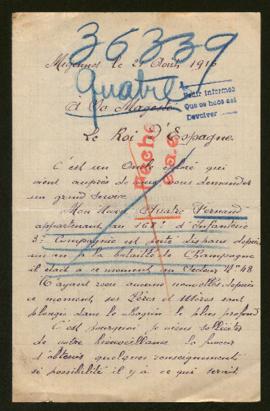 36339
Quatre
Mézannes le 21 Août 1916
Pedir informes
Que se hace asi
Devolver
A Sa Majesté
Le Roi d'Espagne.
Fiche
C'est un Oncle éploré qui
vient auprès de vous vous demander
un grand service.
Mon Neveu Quatre Fernand
appartenant au 163e d'Infanterie
3e Compagnie est porté disparu depuis
un an à la bataille de Champagne
il était à ce moment au Secteur No 48
N'ayant reçu aucune nouvelles depuis
ce moment, ses Pères et Mères sont
plongés dans le chagrin le plus profond
C'est pourquoi je viens solliciter
de votre bienveillance la faveur
d'obtenir quelques renseignements
si possibilité il y a ce qui serait